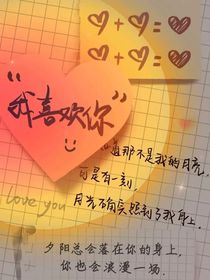 ♡ + ♡ = ♥
♡ + ♡ = ♥
“我喜欢你”
知道那不是我的月亮,
可是有一刻,
月光确实照到了我身上.
love you
夕阳总会落在你的身上,
你也会浪漫一场.